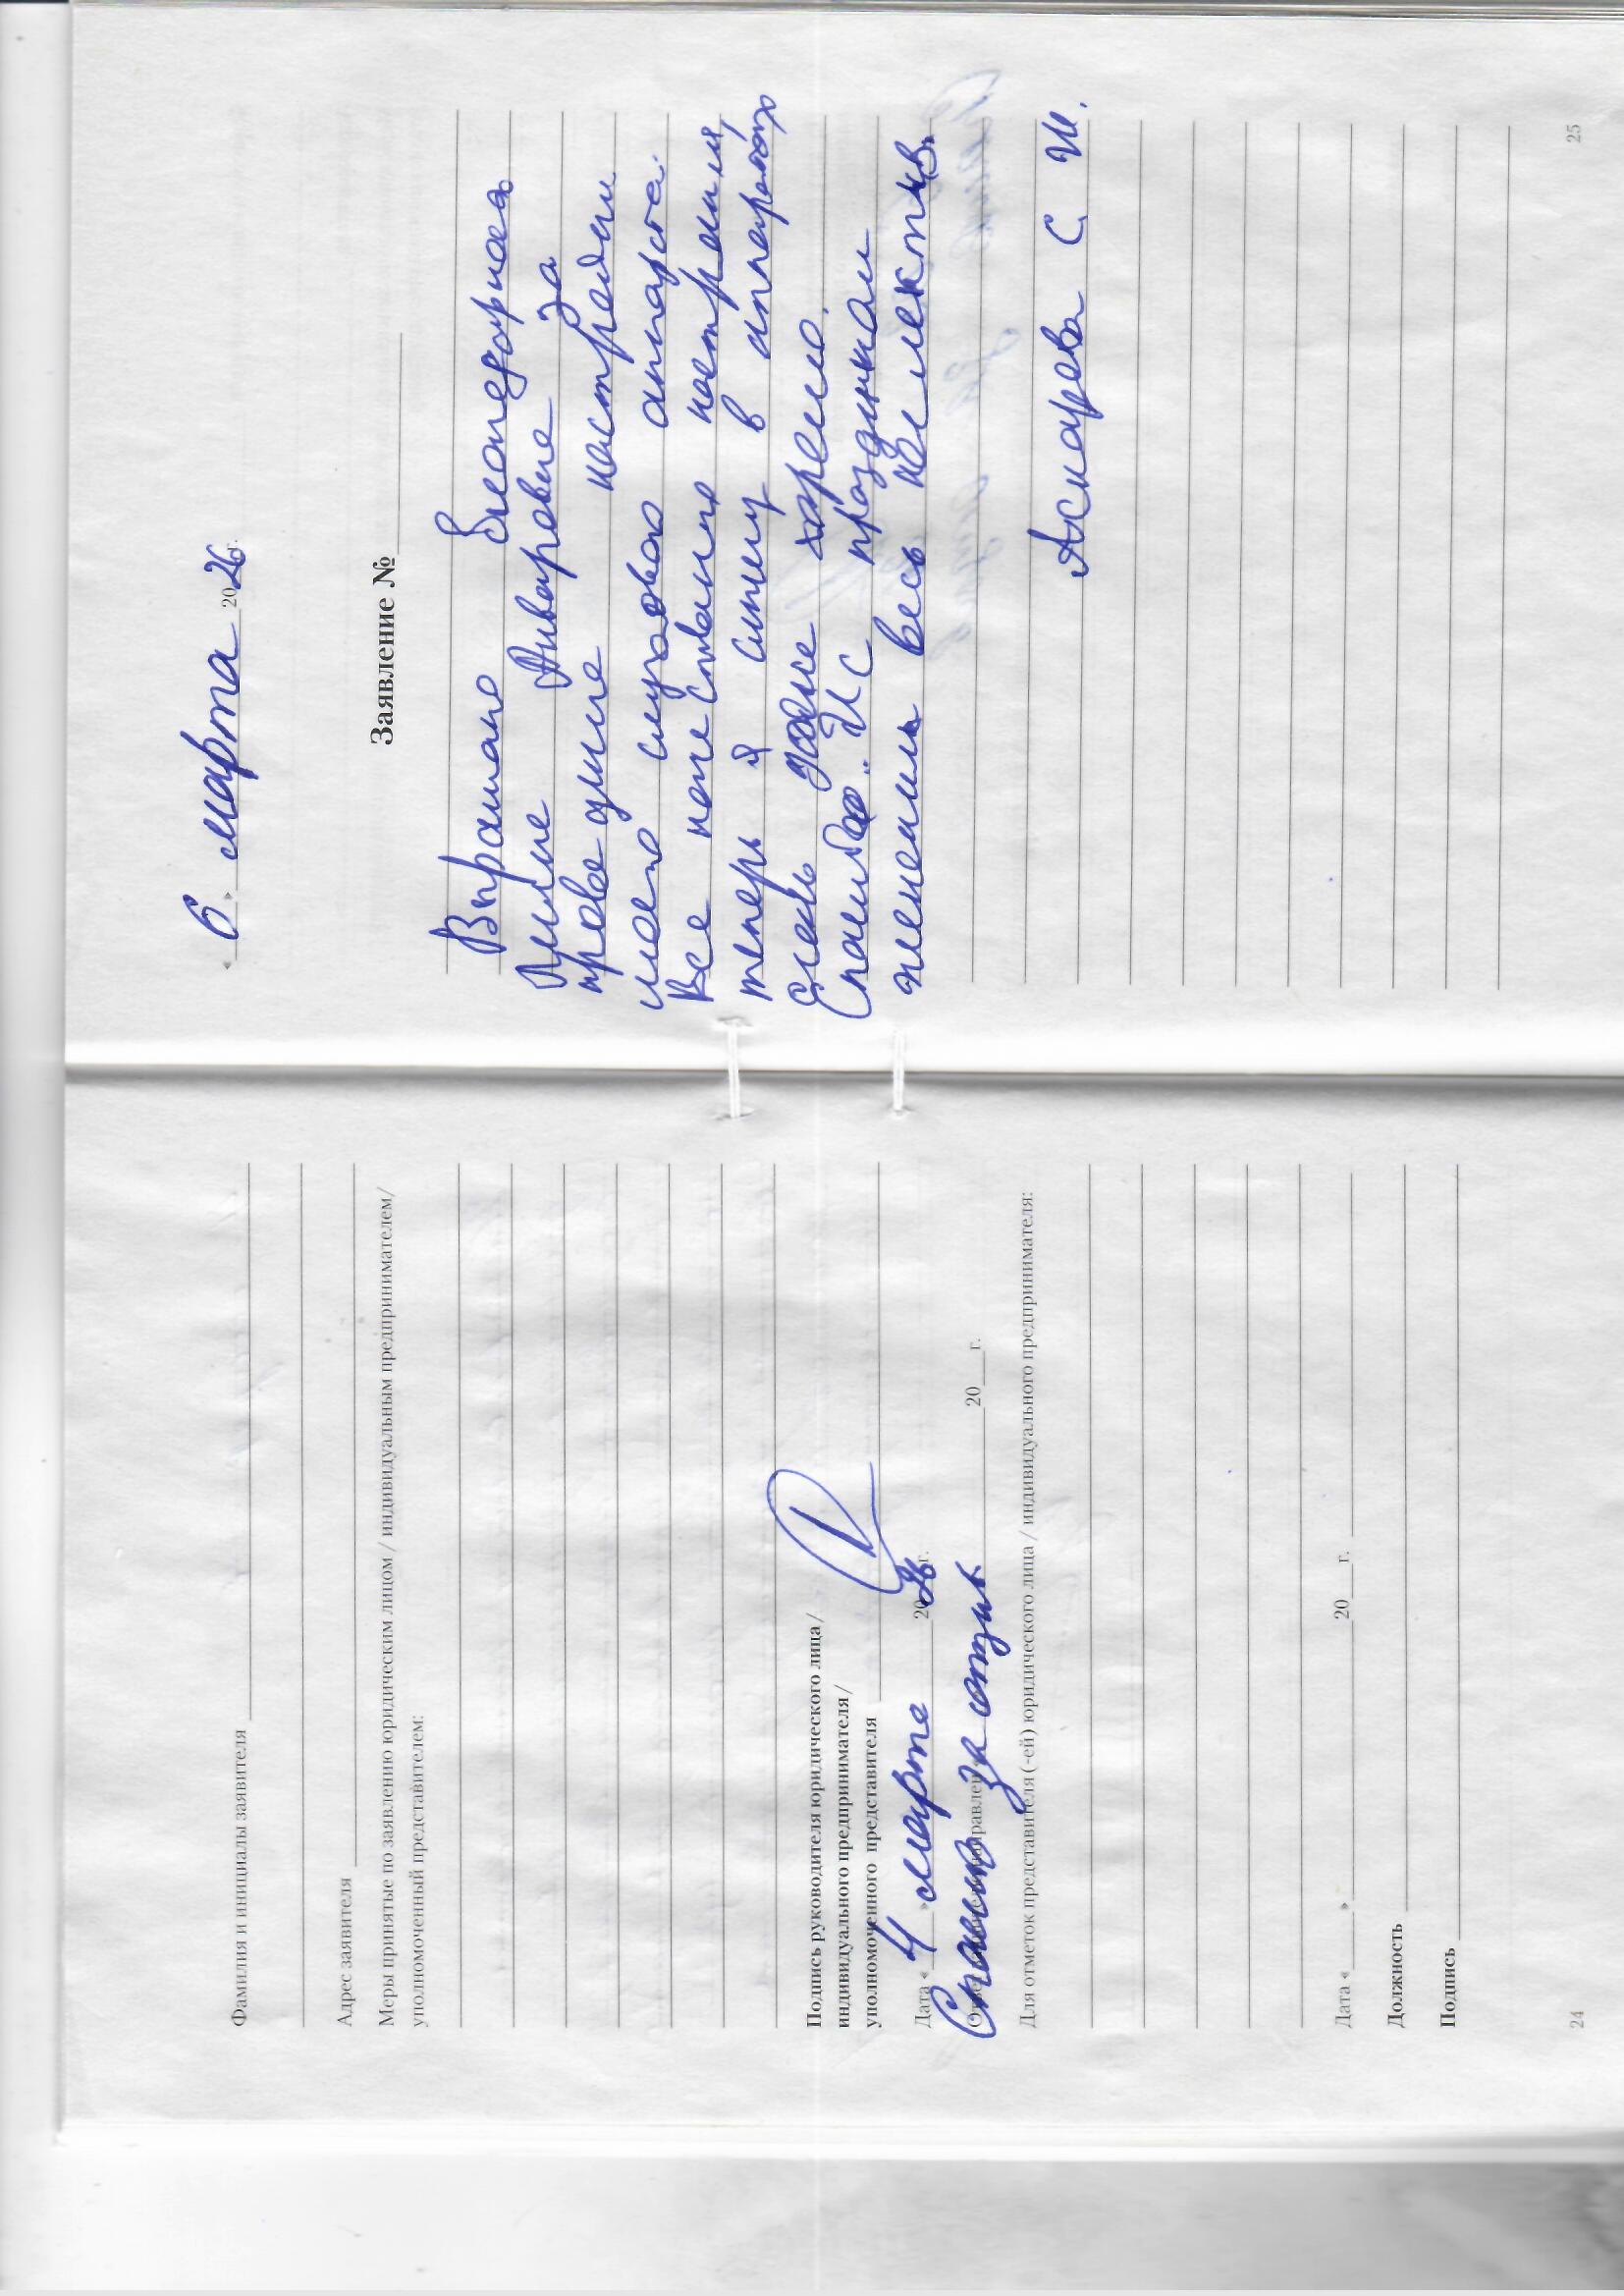 Фамилия и инициалы заявителя
Адрес заявителя
Меры принятые по заявлению юридическим лицом / индивидуальным предпринимателем/
уполномоченный представителем:
Подпись руководителя юридического лица /
индивидуального предпринимателя /
уполномоченного представителя
Дата « 4 » марта 2026 г.
Спасибо за отзыв. 20 г.
Для отметок представителя (-ей) юридического лица / индивидуального предпринимателя:
Дата « » 20 г.
Должность
Подпись
24
« 6 » марта 2026 г.
Заявление №
Выражаю благодарность
Анваровне за
проведение настройки
моего слухового аппарата.
Все качественно настроили,
теперь я слышу в аппаратах
очень даже хорошо.
Спасибо. И с праздником
женским весь коллектив.
Аскарова С И.
25